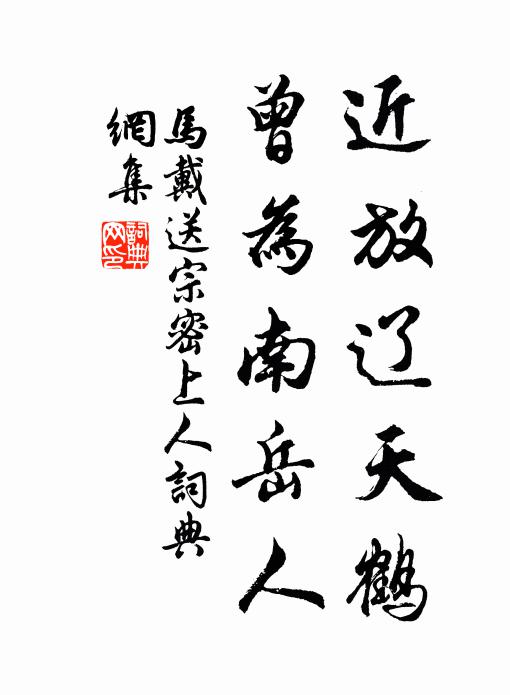 近放辽天鹤
曾為南岳人
馬戴送宗密上人詞典
網集
詞典
网印